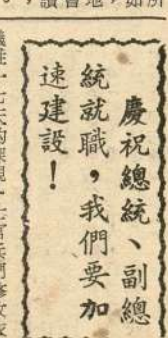 慶祝總統、副總
統就職，我們要加
速建設！